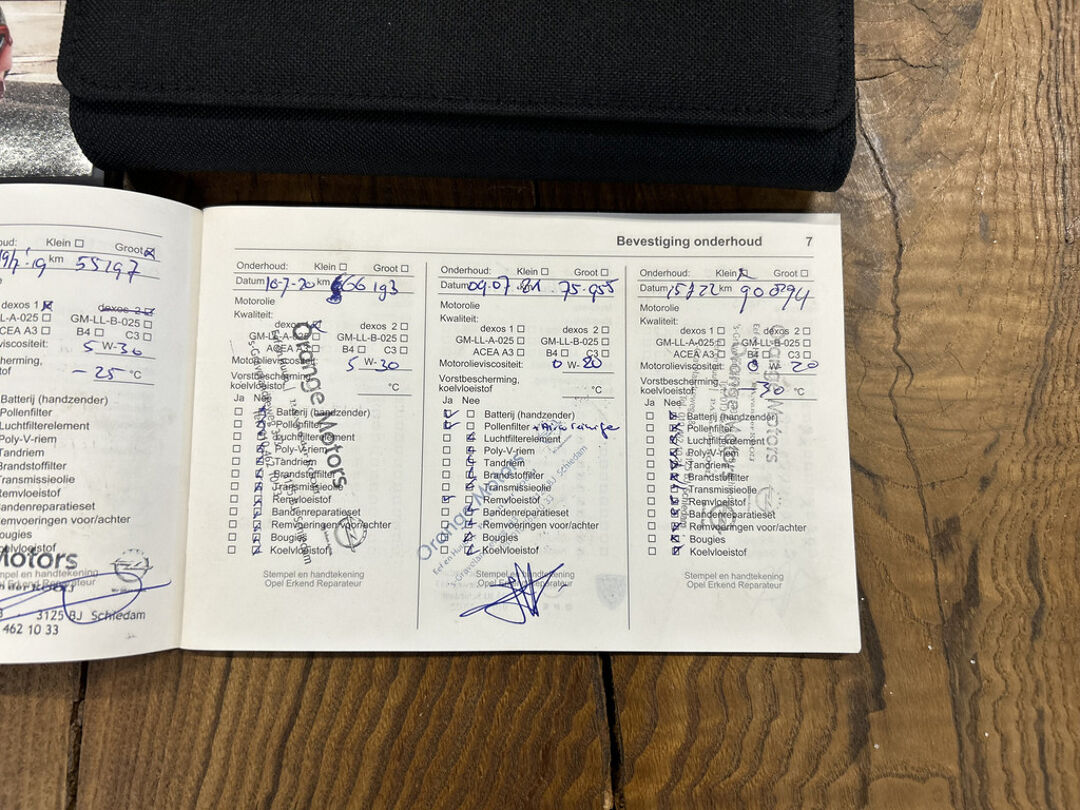 Klein ☐ Groot ☒
km 55197
dexos 1 ☒ dexos 2 ☒
LL-A-025 ☐ GM-LL-B-025 ☐
ACEA A3 ☐ B4 ☐ C3 ☐
viscositeit: 5 W-30
cherming,
-25 °C
Batterij (handzender)
Pollenfilter
Luchtfilterelement
Poly-V-riem
Tandriem
Brandstoffilter
Transmissieolie
Remvloeistof
Bandenreparatieset
Remvoeringen voor/achter
Bougies
Koelvloeistof
Motors
Stempel en handtekening
Reparateur
3125 BJ Schiedam
462 10 33
Bevestiging onderhoud 7
Onderhoud: Klein ☐ Groot ☐
Datum 16-7-20 km 66 193
Motorolie
Kwaliteit:
dexos 1 ☒ dexos 2 ☐
GM-LL-A-025 ☐ GM-LL-B-025 ☐
ACEA A3 ☐ B4 ☐ C3 ☐
Motorolieviscositeit: 5 W-30
Vorstbescherming,
koelvloeistof °C
Ja Nee
Batterij (handzender)
Pollenfilter
Luchtfilterelement
Poly-V-riem
Tandriem
Brandstoffilter
Transmissieolie
Remvloeistof
Bandenreparatieset
Remvoeringen voor/achter
Bougies
Koelvloeistof
Orange Motors
Stempel en handtekening
Opel Erkend Reparateur
Onderhoud: Klein ☐ Groot ☐
Datum 09-07-21 75-955
Motorolie
Kwaliteit:
dexos 1 ☐ dexos 2 ☐
GM-LL-A-025 ☐ GM-LL-B-025 ☐
ACEA A3 ☐ B4 ☐ C3 ☐
Motorolieviscositeit: 0 W-20
Vorstbescherming,
koelvloeistof °C
Ja Nee
Batterij (handzender)
Pollenfilter + Airco reinige
Luchtfilterelement
Poly-V-riem
Tandriem
Brandstoffilter
Transmissieolie
Remvloeistof
Bandenreparatieset
Remvoeringen voor/achter
Bougies
Koelvloeistof
Orange Motors
BJ Schiedam
Stempel en handtekening
Opel Erkend Reparateur
Onderhoud: Klein ☒ Groot ☐
Datum 15/7 22 km 90094
Motorolie
Kwaliteit:
dexos 1 ☐ dexos 2 ☐
GM-LL-A-025 ☐ GM-LL-B-025 ☐
ACEA A3 ☐ B4 ☐ C3 ☐
Motorolieviscositeit: 0 W-20
Vorstbescherming,
koelvloeistof -30 °C
Ja Nee
Batterij (handzender)
Pollenfilter
Luchtfilterelement
Poly-V-riem
Tandriem
Brandstoffilter
Transmissieolie
Remvloeistof
Bandenreparatieset
Remvoeringen voor/achter
Bougies
Koelvloeistof
Orange Motors
Stempel en handtekening
Opel Erkend Reparateur